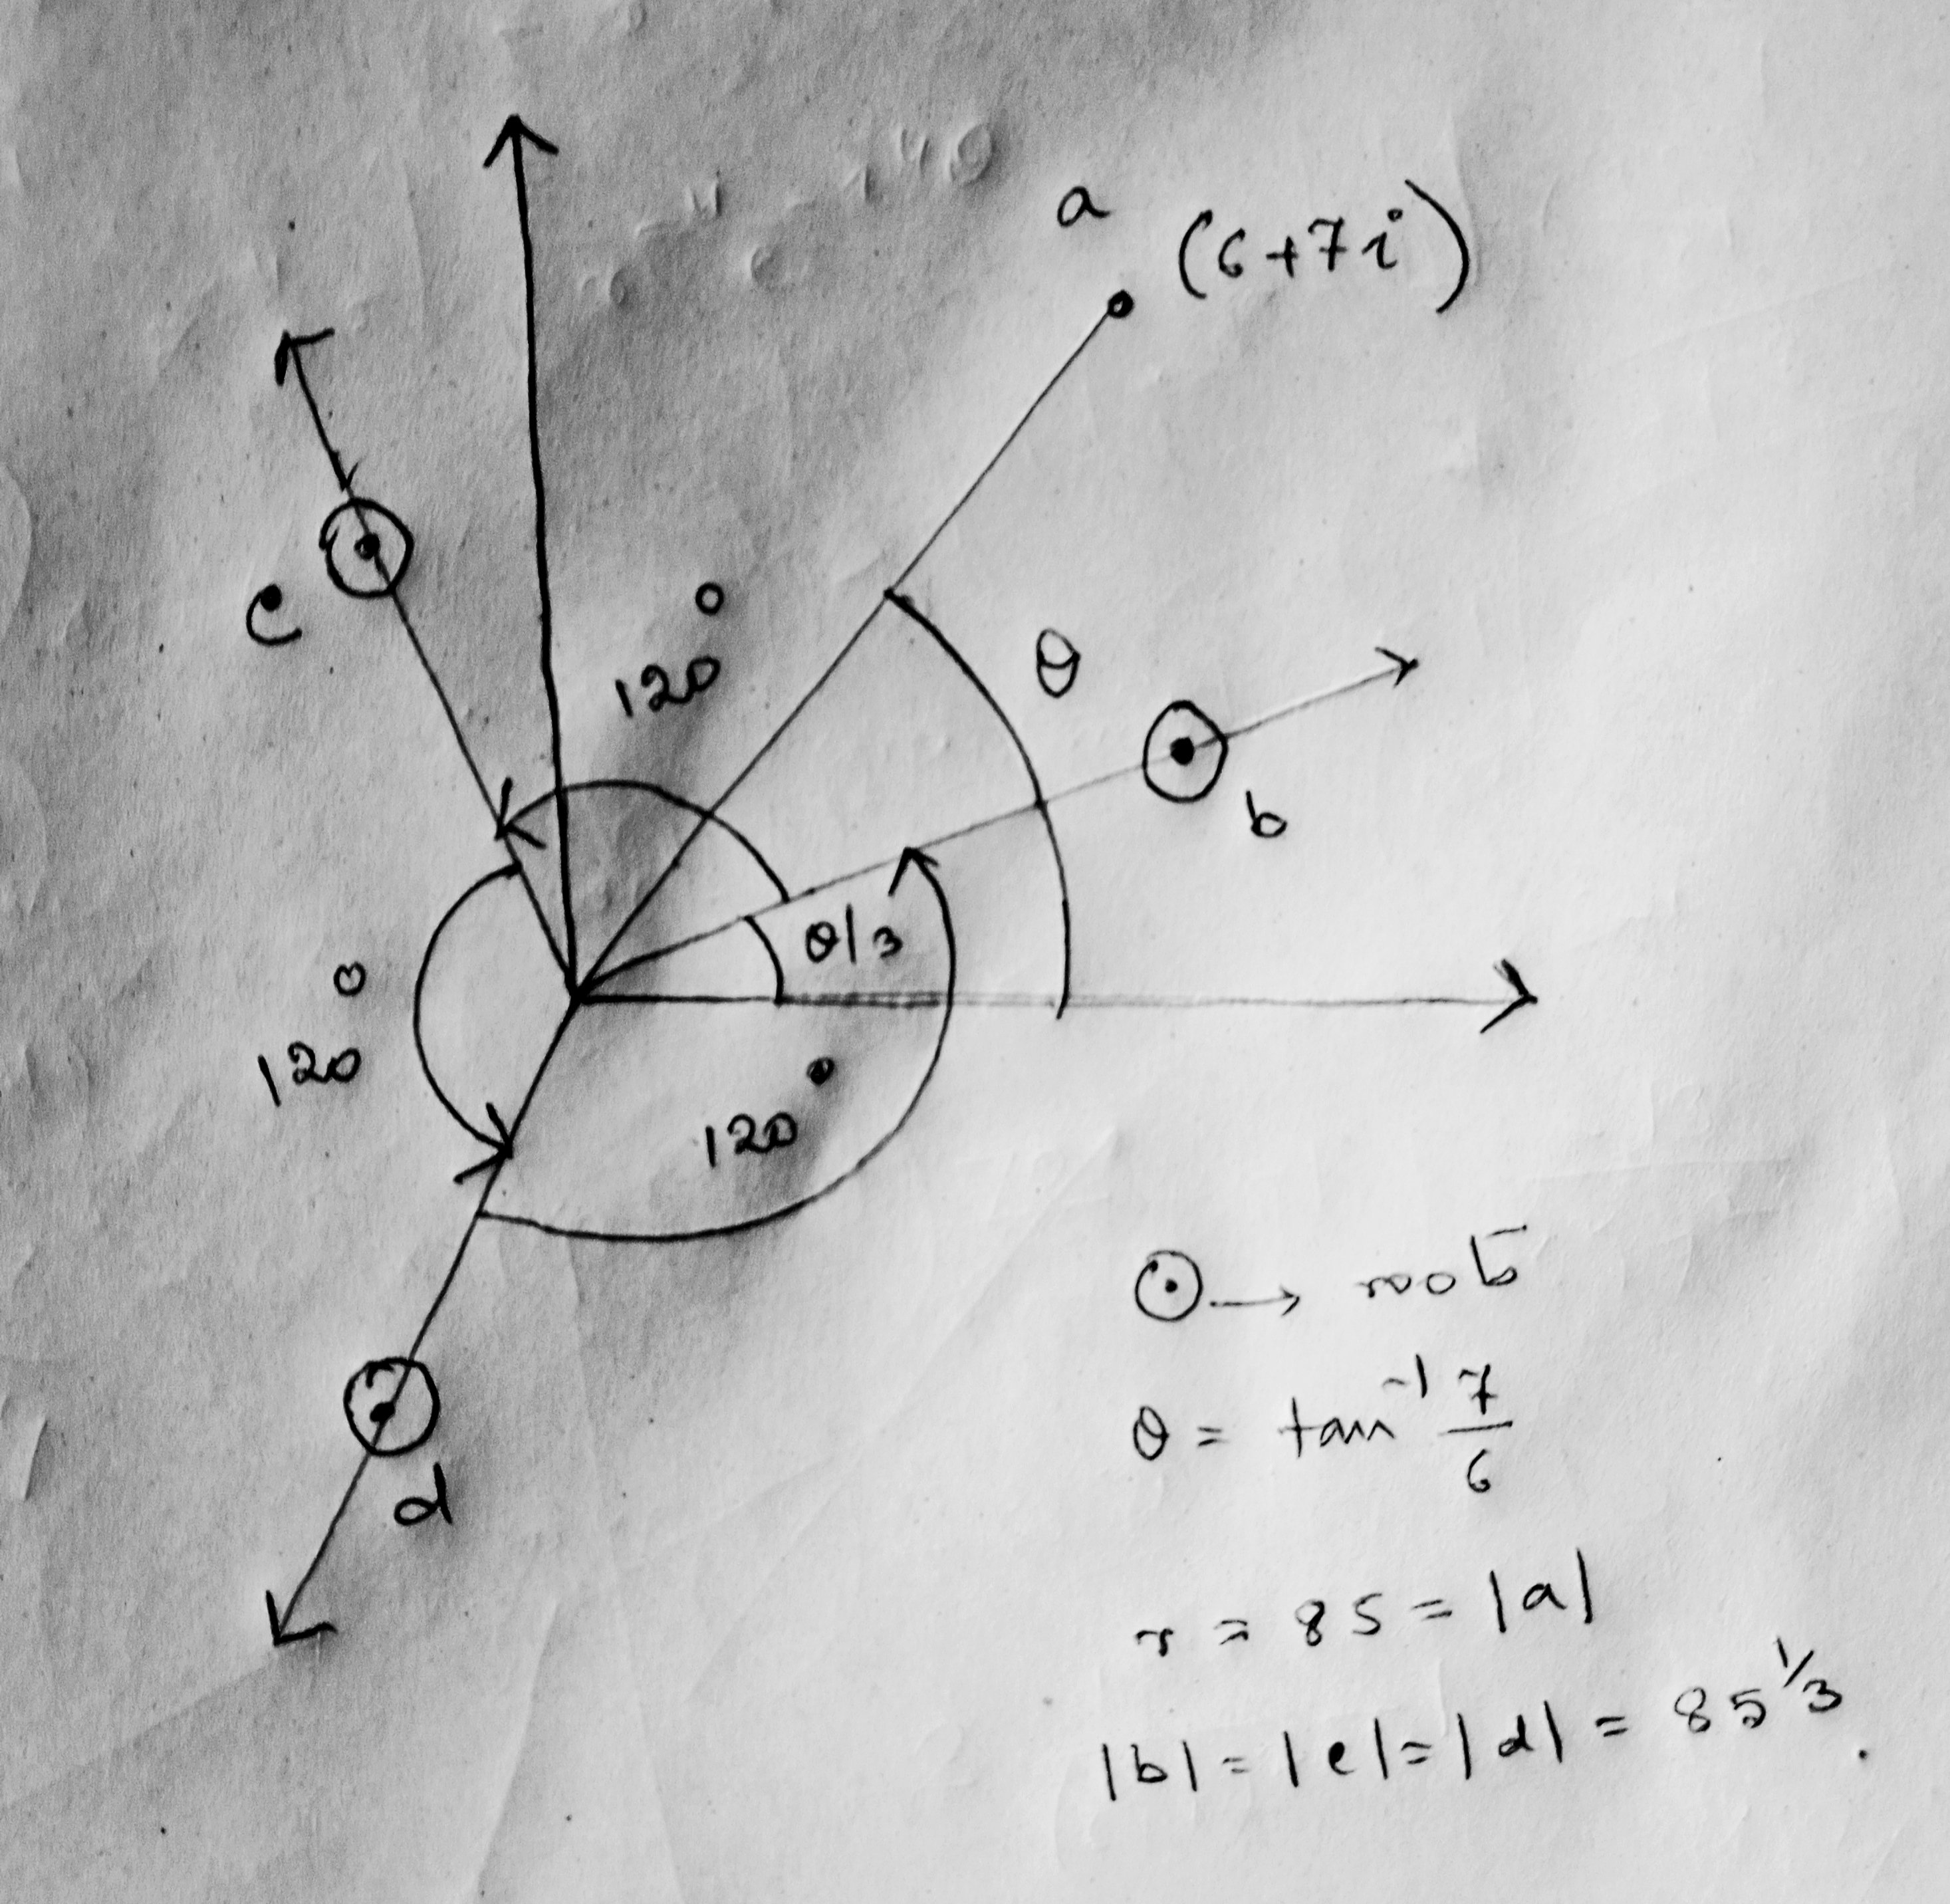 a
(6+7i)
c
120°
θ
b
θ/3
120°
120°
d
⊙→ root
θ = tan⁻¹ 7/6
r = 85 = |a|
|b| = |c| = |d| = 85^1/3.